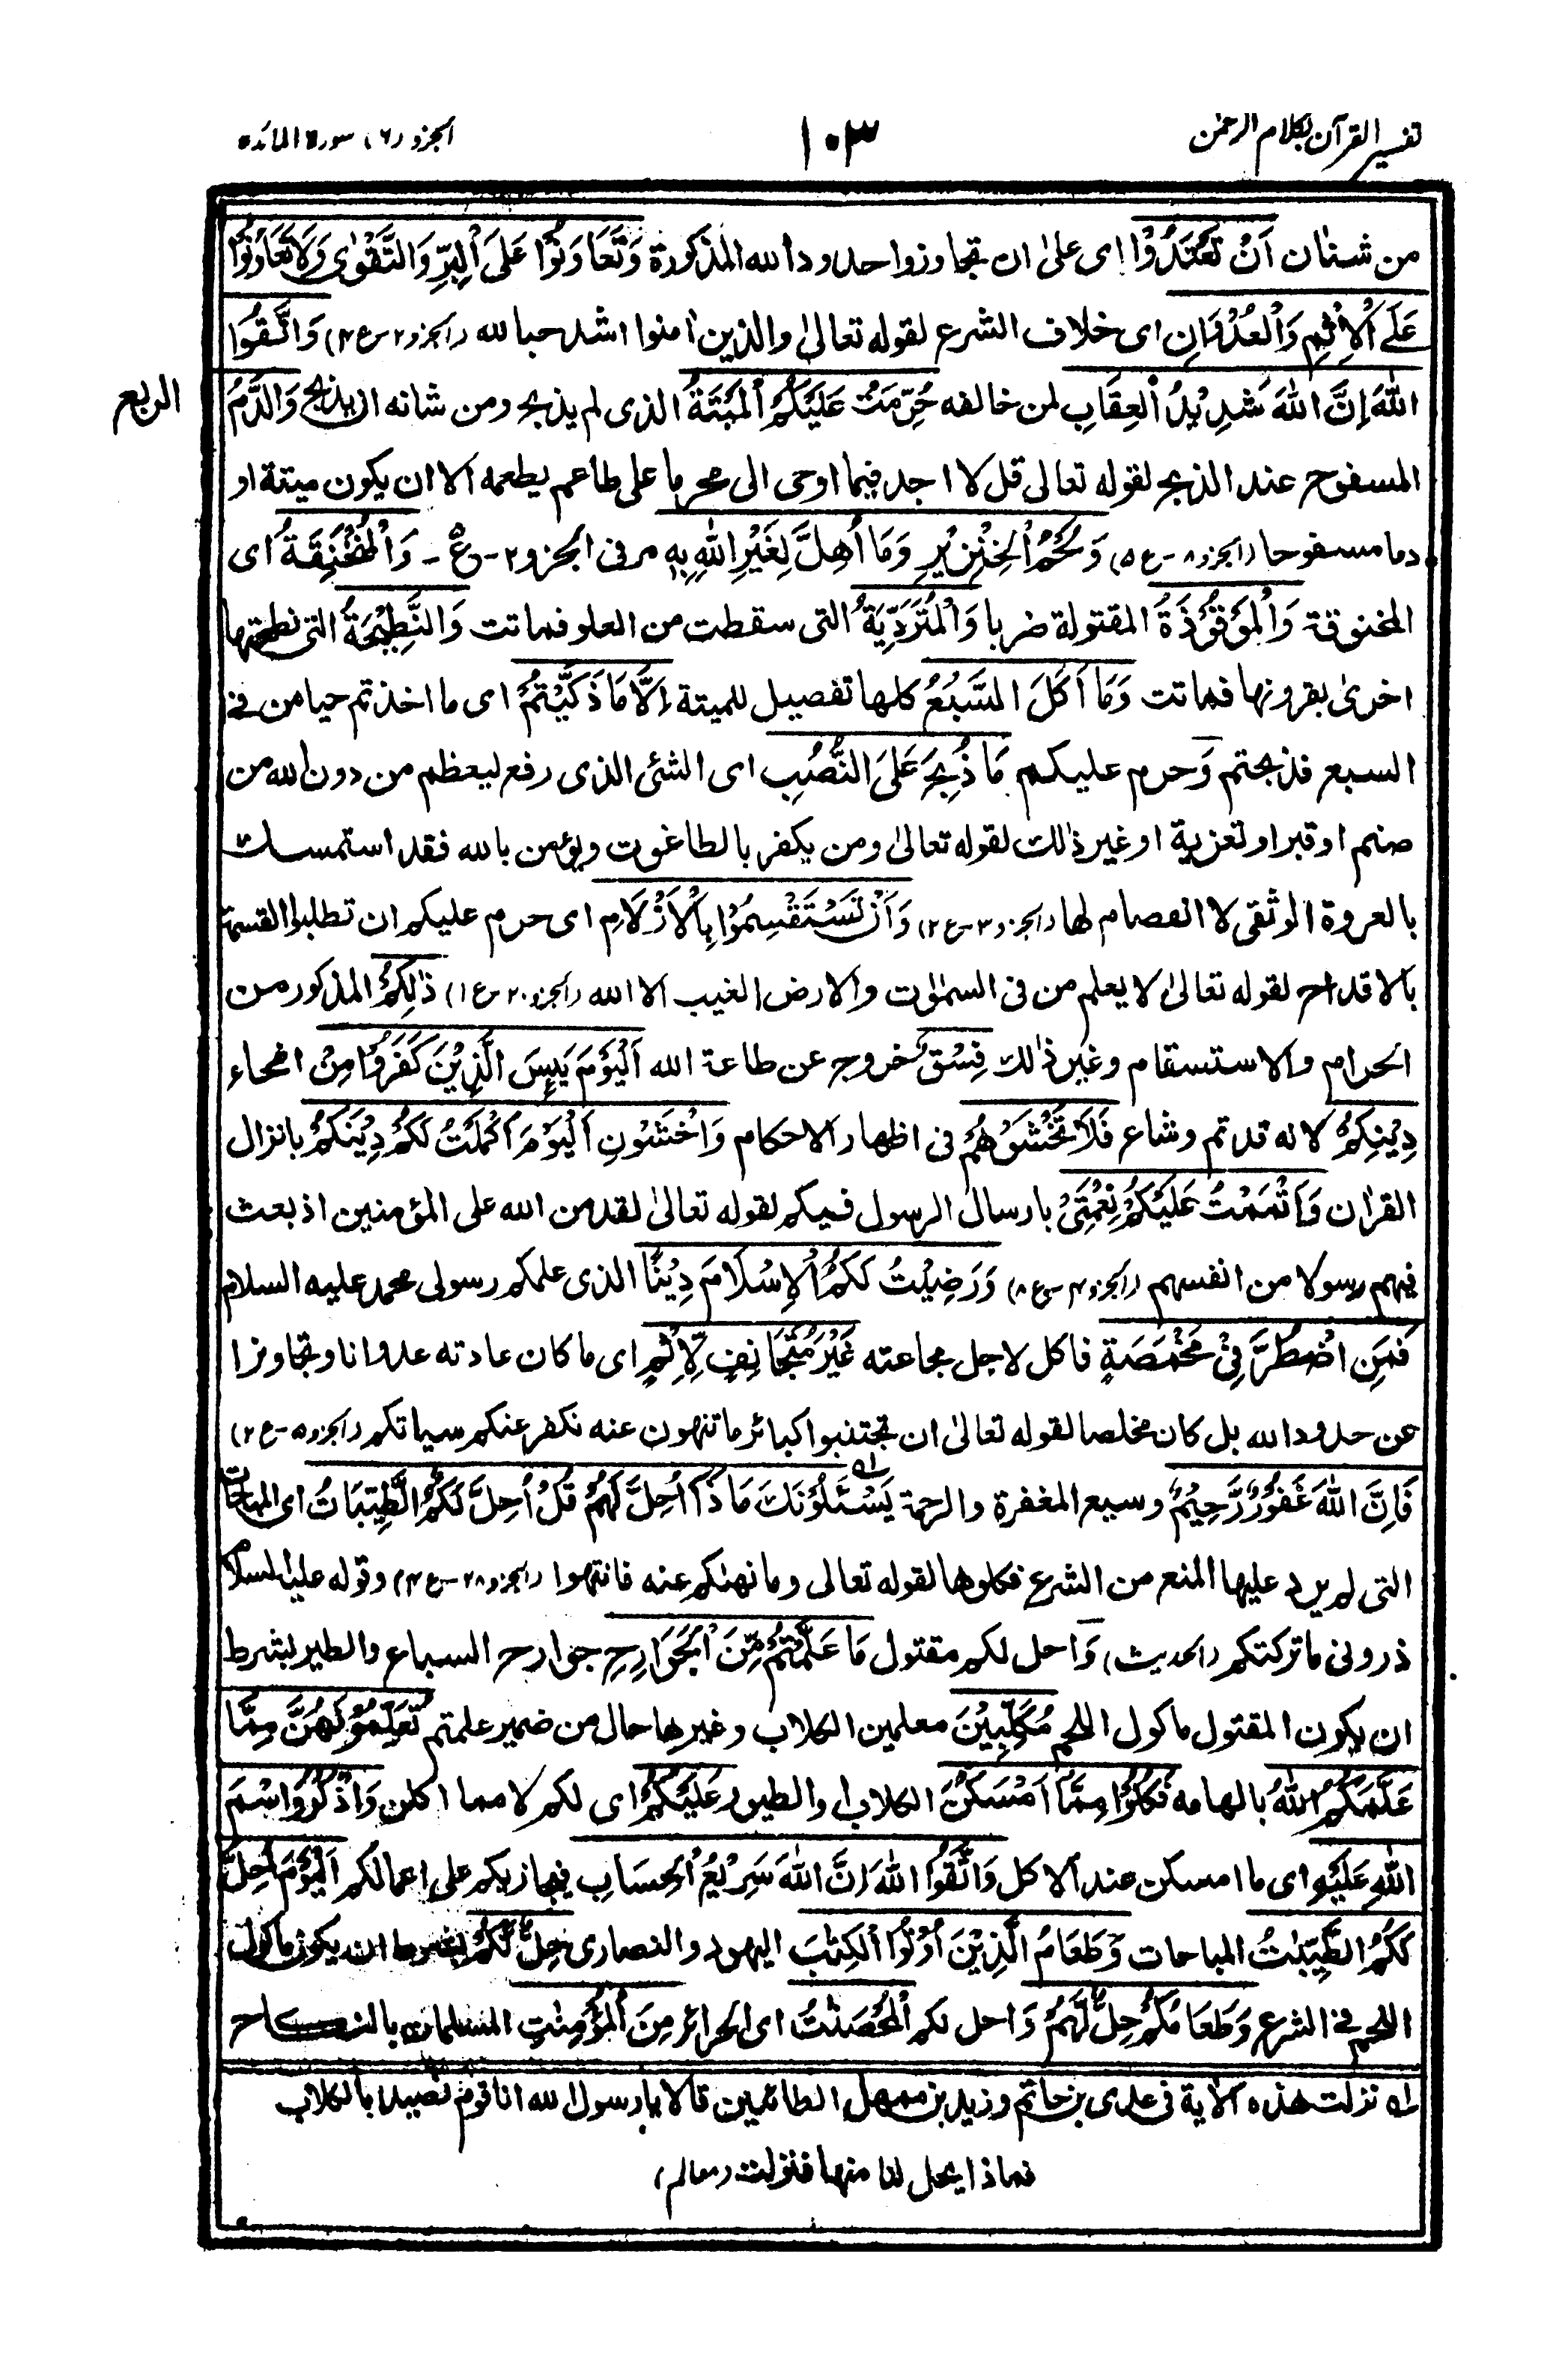 تفسير القرآن بكلام الرحمٰن
١٠٣
الجزو (٦) سورة المائدة
من شنئان اَنْ تَعْتَدُوْا اى علىٰ ان تجاوزوا حدود الله المذكورة وَتَعَاوَنُوْا عَلَى الْبِرِّ وَالتَّقْوٰى وَلَا تَعَاوَنُوْا
عَلَى الْاِثْمِ وَالْعُدْوَانِ اى خلاف الشرع لقوله تعالىٰ والذين اٰمنوا اشد حبا لله (الجزو ٢ - ع ٤) وَاتَّقُوا
اللّٰهَ اِنَّ اللّٰهَ شَدِيْدُ الْعِقَابِ لمن خالفه حُرِّمَتْ عَلَيْكُمُ الْمَيْتَةُ الذى لم يذبح ومن شانه ان يذبح وَالدَّمُ
الربع
المسفوح عند الذبح لقوله تعالى قل لا اجد فيما اوحى الى محرما على طاعم يطعمه الا ان يكون ميتة او
دما مسفوحا (الجزو ٨ - ع ٥) وَلَحْمُ الْخِنْزِيْرِ وَمَا اُهِلَّ لِغَيْرِ اللّٰهِ بِهٖ مر فى الجزو ٢ - ع ٥ - وَالْمُنْخَنِقَةُ اى
المخنوقة وَالْمَوْقُوْذَةُ المقتولة ضربا وَالْمُتَرَدِّيَةُ التى سقطت من العلو فماتت وَالنَّطِيْحَةُ التى نطحتها
اخرىٰ بقرونها فماتت وَمَا اَكَلَ السَّبُعُ كلها تفصيل للميتة اِلَّا مَا ذَكَّيْتُمْ اى ما اخذتم حيا من فى
السبع فذبحتم وَحرم عليكم مَا ذُبِحَ عَلَى النُّصُبِ اى الشئى الذى رفع ليعظم من دون الله من
صنم او قبر او تعزية او غير ذٰلك لقوله تعالىٰ ومن يكفر بالطاغوت ويؤمن بالله فقد استمسك
بالعروة الوثقى لا انفصام لها (الجزو ٣ - ع ٢) وَاَنْ تَسْتَقْسِمُوْا بِالْاَزْلَامِ اى حرم عليكم ان تطلبوا القسمة
بالاقداح لقوله تعالىٰ لا يعلم من فى السمٰوات والارض الغيب الا الله (الجزو ٢٠ - ع ١) ذٰلِكُمْ المذكور من
الحرام والاستسقام وغير ذٰلك فِسْقٌ خروج عن طاعة الله اَلْيَوْمَ يَئِسَ الَّذِيْنَ كَفَرُوْا مِنْ امحاء
دِيْنِكُمْ لانه قد تم وشاع فَلَا تَخْشَوْهُمْ فى اظهار الاحكام وَاخْشَوْنِ اَلْيَوْمَ اَكْمَلْتُ لَكُمْ دِيْنَكُمْ بانزال
القراٰن وَاَتْمَمْتُ عَلَيْكُمْ نِعْمَتِىْ بارسال الرسول فيكم لقوله تعالىٰ لقد من الله على المؤمنين اذ بعث
فيهم رسولا من انفسهم (الجزو ٤ - ع ٨) وَرَضِيْتُ لَكُمُ الْاِسْلَامَ دِيْنًا الذى علمكم رسولى محمد عليه السلام
فَمَنِ اضْطُرَّ فِىْ مَخْمَصَةٍ فاكل لاجل مجاعته غَيْرَ مُتَجَانِفٍ لِّاِثْمٍ اى ما كان عادته عدوانا وتجاوزا
عن حدود الله بل كان مخلصا لقوله تعالىٰ ان تجتنبوا كبائر ما تنهون عنه نكفر عنكم سياتكم (الجزو ٥ - ع ٢)
فَاِنَّ اللّٰهَ غَفُوْرٌ رَّحِيْمٌ وسيع المغفرة والرحمة يَسْئَلُوْنَكَ مَا ذَا اُحِلَّ لَهُمْ ا‍ه‍ قُلْ اُحِلَّ لَكُمُ الطَّيِّبَاتُ اى المباحات
التى لم يرد عليها المنع من الشرع فكلوها لقوله تعالى وما نهٰكم عنه فانتهوا (الجزو ٢٨ - ع ٤) وقوله عليه السلام
ذرونى ما تركتكم (الحديث) وَاحل لكم مقتول مَا عَلَّمْتُمْ مِّنَ الْجَوَارِحِ جوارح السباع والطير بشرط
ان يكون المقتول ماكول اللحم مُكَلِّبِيْنَ معلمين الكلاب وغيرها حال من ضمير علمتم تُعَلِّمُوْنَهُنَّ مِمَّا
عَلَّمَكُمُ اللّٰهُ بالهامه فَكُلُوْا مِمَّا اَمْسَكْنَ الكلاب والطيور عَلَيْكُمْ اى لكم لا مما اكلن وَاذْكُرُوا اسْمَ
اللّٰهِ عَلَيْهِ اى ما امسكن عند الاكل وَاتَّقُوا اللّٰهَ اِنَّ اللّٰهَ سَرِيْعُ الْحِسَابِ فيجازيكم على اعمالكم اَلْيَوْمَ اُحِلَّ
لَكُمُ الطَّيِّبٰتُ المباحات وَطَعَامُ الَّذِيْنَ اُوْتُوا الْكِتٰبَ اليهود والنصارى حِلٌّ لَّكُمْ بشرط ان يكون ماكول
اللحم فى الشرع وَطَعَامُكُمْ حِلٌّ لَّهُمْ وَاحل لكم الْمُحْصَنٰتُ اى الحرائر مِنَ الْمُؤْمِنٰتِ المسلمات بالنكاح
ا‍ه‍ نزلت هذه الاٰية فى عدى بن حاتم وزيد بن مهلهل الطائيين قالا يا رسول الله انا قوم نصيد بالكلاب
فماذا يحل لنا منها فنزلت (معالم)